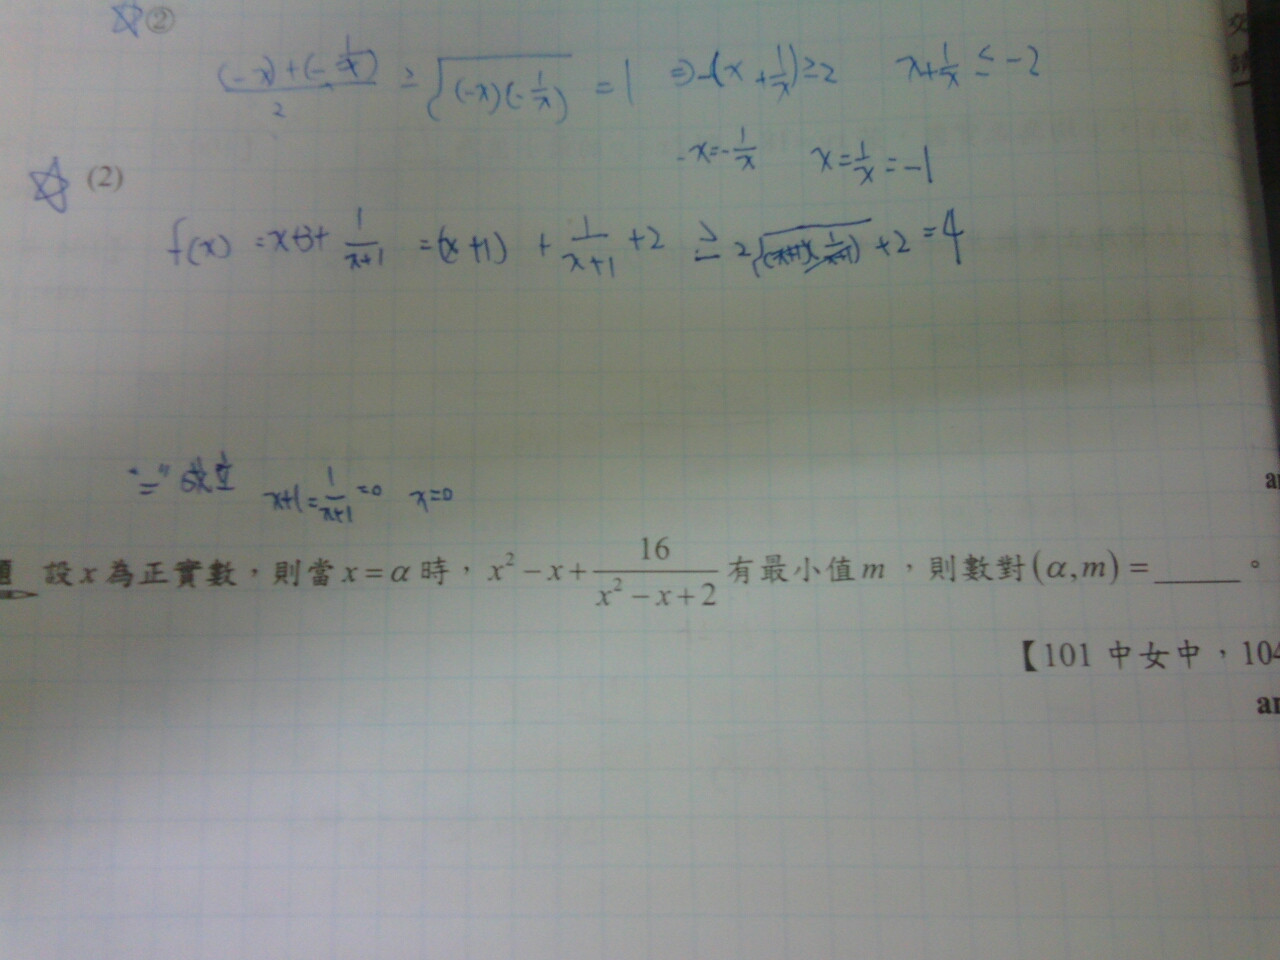 ②
((-x)+(-1/x))/2 ≥ √((-x)(-1/x)) = 1 ⇒ -(x+1/x) ≥ 2 x+1/x ≤ -2
-x=-1/x x=1/x=-1
(2)
f(x) = x+3+1/(x+1) = (x+1) + 1/(x+1) + 2 ≥ 2√((x+1)(1/(x+1))) + 2 = 4
"=" 成立 x+1=1/(x+1)=0 x=0
設 x 為正實數，則當 x=α 時，x²-x+16/(x²-x+2) 有最小值 m ，則數對 (α,m) = _____ 。
【101 中女中，104